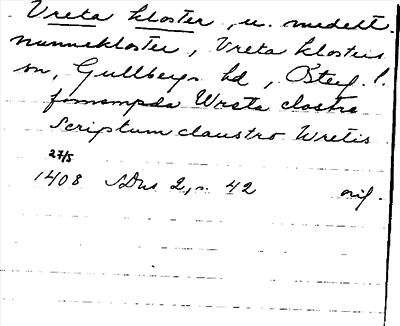 Vreta kloster, u. medelt.
nunnekloster, Vreta klosters
sn, Gullbergs hd, Östergl.
fornompda Wreta clostre
Scriptum claustro Wretis
27/5
1408 SDns 2, s. 42 orig.